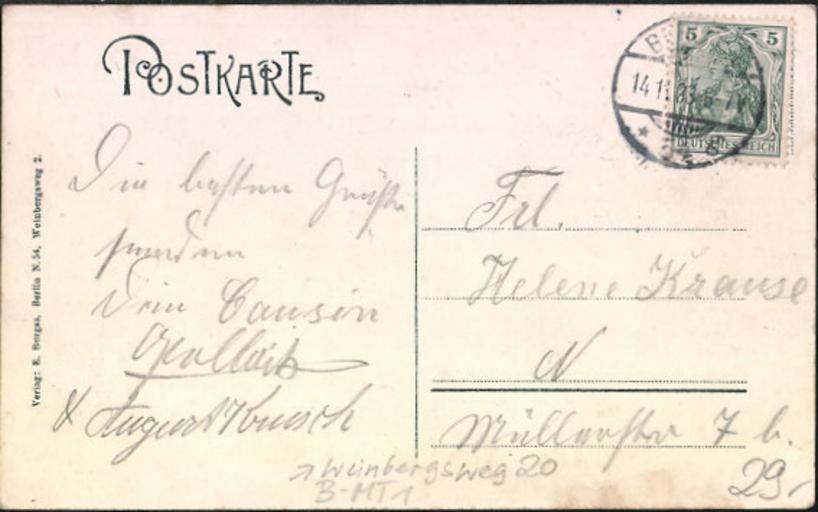 POSTKARTE
5 5
DEUTSCHES REICH
14 11
Die besten Grüße
senden
Dein Cousin
& August
Frl.
Helene Krause
N
Müllerstr 7 b.
Weinbergsweg 20
B-MT1
29,-
Verlag: E. Burgas, Berlin N.54, Weinbergsweg 2.